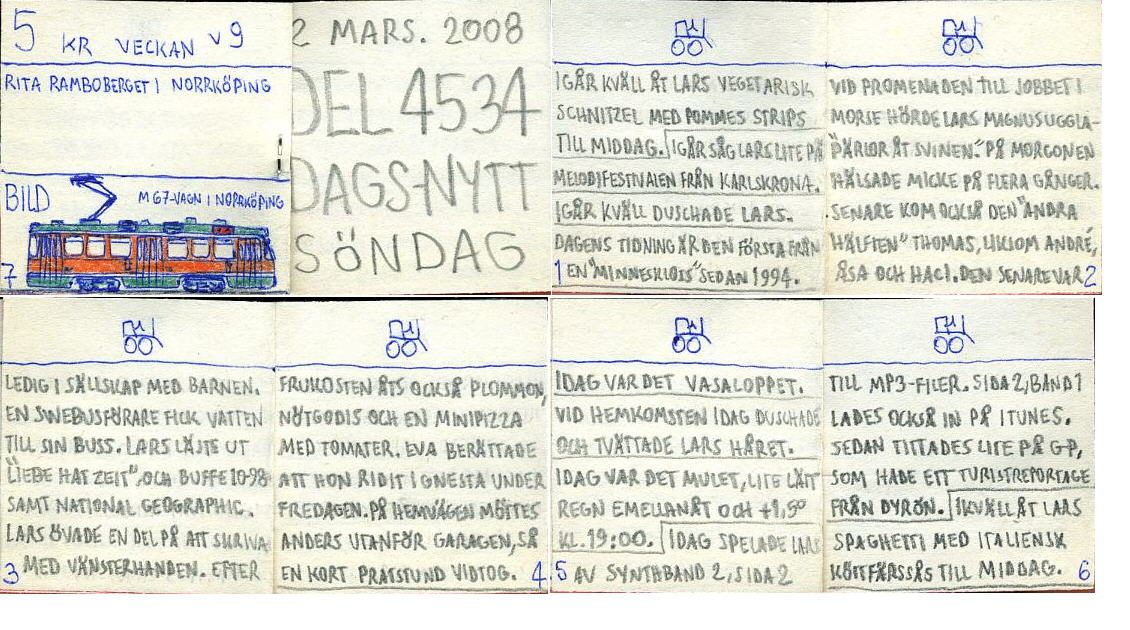 5 KR VECKAN V9
RITA RAMBOBERGET I NORRKÖPING
BILD
M67-VAGN I NORRKÖPING
7
2 MARS. 2008
DEL 4534
DAGS-NYTT
SÖNDAG
IGÅR KVÄLL ÅT LARS VEGETARISK
SCHNITZEL MED POMMES STRIPS
TILL MIDDAG. IGÅR SÅG LARS LITE PÅ
MELODIFESTIVALEN FRÅN KARLSKRONA.
IGÅR KVÄLL DUSCHADE LARS.
DAGENS TIDNING ÄR DEN FÖRSTA FRÅN
EN "MINNESKLOSS" SEDAN 1994.
1
VID PROMENADEN TILL JOBBET I
MORSE HÖRDE LARS MAGNUS UGGLA-
"PÄRLOR ÅT SVINEN." PÅ MORGONEN
HÄLSADE MICKE PÅ FLERA GÅNGER.
SENARE KOM OCKSÅ DEN "ANDRA
HÄLFTEN" THOMAS, LIKSOM ANDRÉ,
ÅSA OCH HACI. DEN SENARE VAR
2
LEDIG I SÄLLSKAP MED BARNEN.
EN SWEBUSFÖRARE FICK VATTEN
TILL SIN BUSS. LARS LÄSTE UT
"LIEBE HAT ZEIT", OCH BUFFE 10-98
SAMT NATIONAL GEOGRAPHIC.
LARS ÖVADE EN DEL PÅ ATT SKRIVA
MED VÄNSTERHANDEN. EFTER
3
FRUKOSTEN ÅTS OCKSÅ PLOMMON,
NÖTGODIS OCH EN MINIPIZZA
MED TOMATER. EVA BERÄTTADE
ATT HON RIDIT I GNESTA UNDER
FREDAGEN. PÅ HEMVÄGEN MÖTTES
ANDERS UTANFÖR GARAGEN, SÅ
EN KORT PRATSTUND VIDTOG.
4
IDAG VAR DET VASALOPPET.
VID HEMKOMSTEN IDAG DUSCHADE
OCH TVÄTTADE LARS HÅRET.
IDAG VAR DET MULET, LITE LÄTT
REGN EMELLANÅT OCH +1,5°
KL. 19:00. IDAG SPELADE LARS
AV SYNTHBAND 2, SIDA 2
5
TILL MP3-FILER. SIDA 2, BAND 1
LADES OCKSÅ IN PÅ ITUNES.
SEDAN TITTADES LITE PÅ GP,
SOM HADE ETT TURISTREPORTAGE
FRÅN DYRÖN. IKVÄLL ÅT LARS
SPAGHETTI MED ITALIENSK
KÖTTFÄRSSÅS TILL MIDDAG.
6